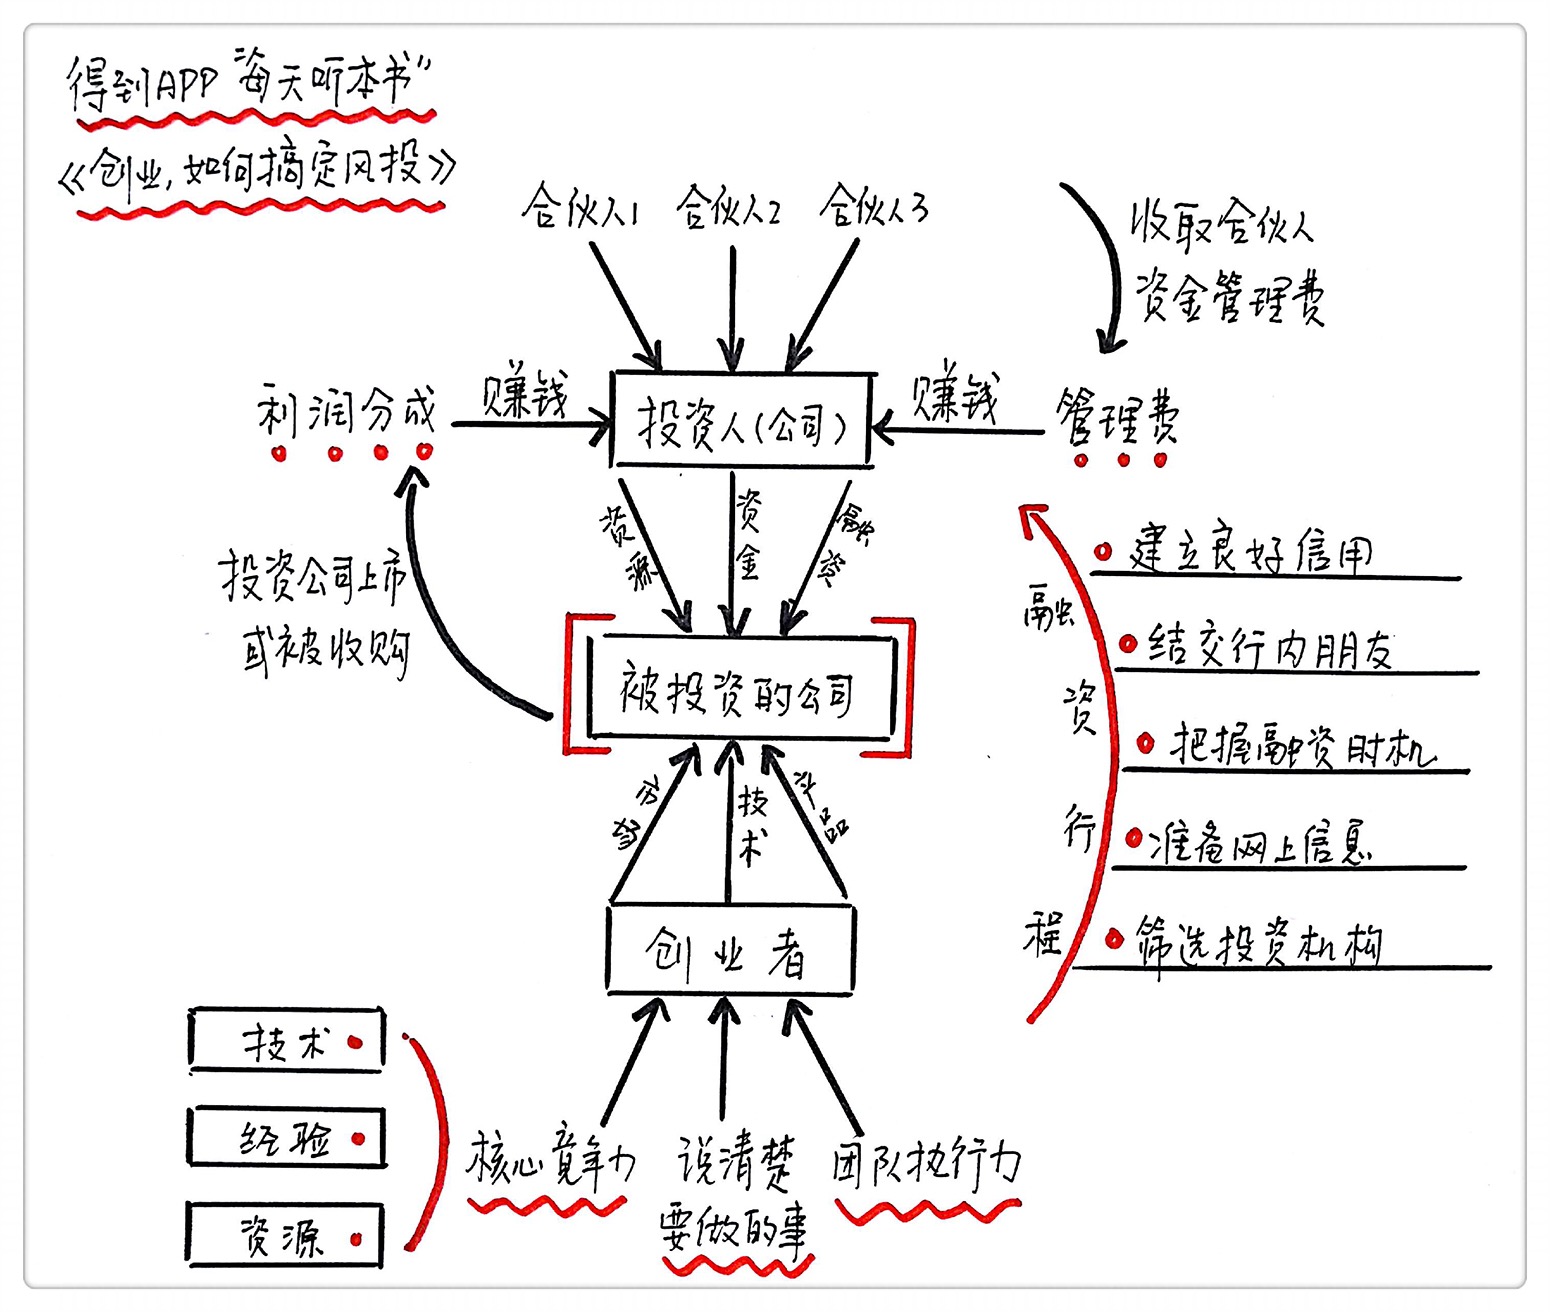 得到APP“每天听本书”
《创业,如何搞定风投》
合伙人1 合伙人2 合伙人3
收取合伙人
资金管理费
利润分成
赚钱
投资人(公司)
赚钱
管理费
资源
资金
融资
投资公司上市
或被收购
被投资的公司
融资行程
建立良好信用
结交行内朋友
把握融资时机
准备网上信息
筛选投资机构
技术
产品
创业者
技术
经验
资源
核心竞争力
说清楚
要做的事
团队执行力